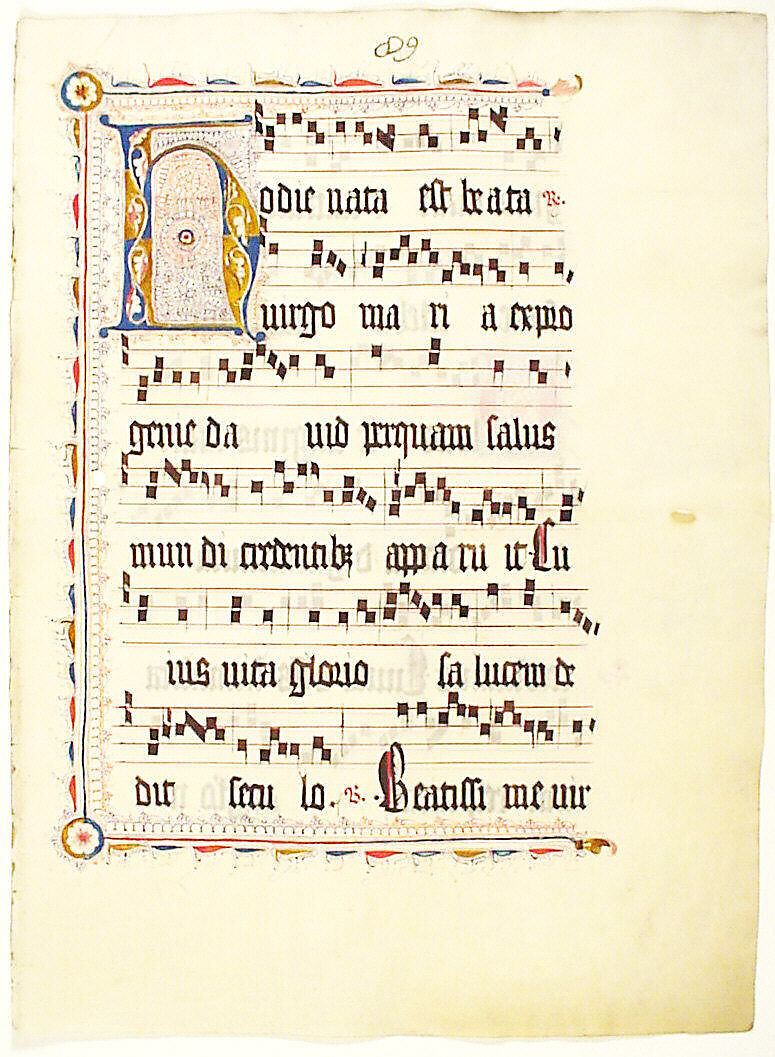 Hodie nata est beata R.
uirgo ma ri a expro
genie da uid perquam salus
mun di credentibꝫ appa ru it Cu
ius uita glorio sa lucem de
dit secu lo. R. Beatissi me uir